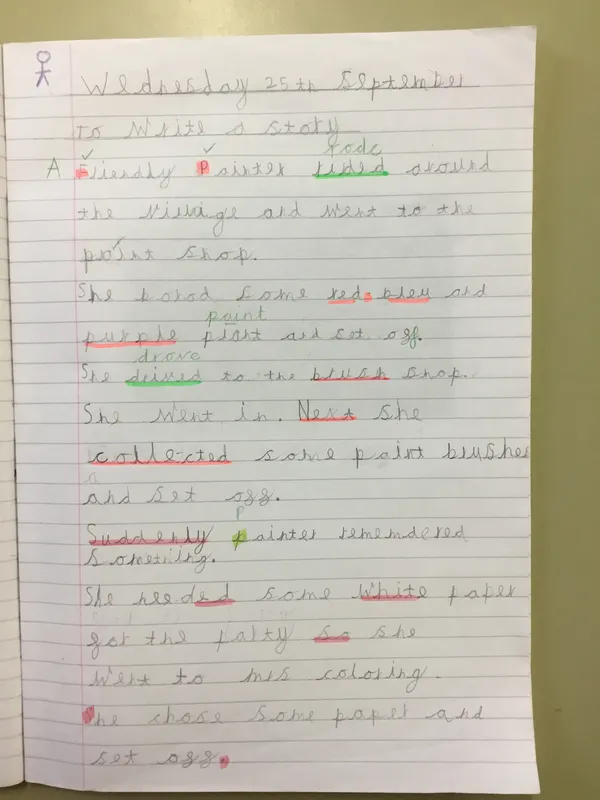 Wednesday 25th September
To write a story
rode
A Friendly Painter rided around
the village and went to the
paint shop.
She borod some red, bleu and
paint
purple piant and set off.
drove
She drived to the brush shop.
She went in. Next she
collected some paint brushes
and set off.
P
Suddenly painter remembered
something.
She needed some white paper
for the party so she
went to mrs coloring.
She chose some paper and
set off.